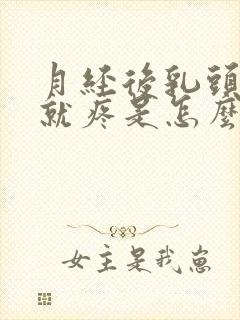 月经後乳頭
就疼是怎麼
女主是我崽